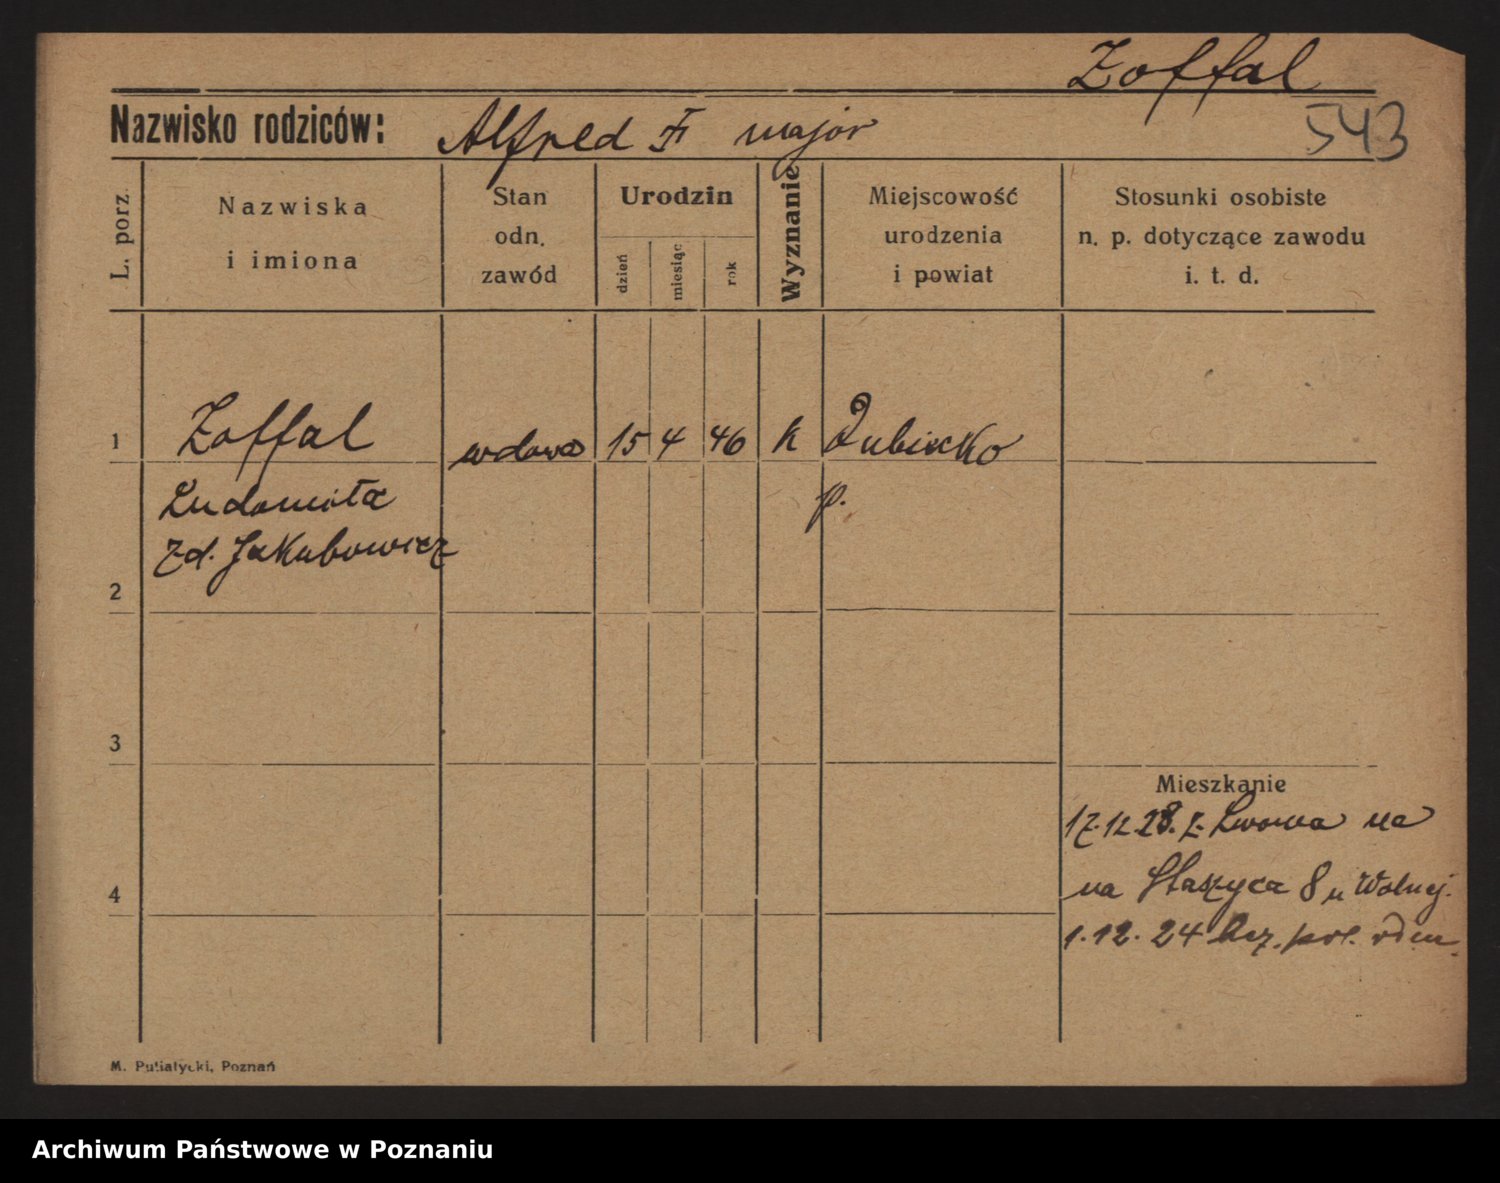 Zoffal
Nazwisko rodziców: Alfred major
543
L. porz.
Nazwiska
i imiona
Stan
odn.
zawód
Urodzin
dzień
miesiąc
rok
Wyznanie
Miejscowość
urodzenia
i powiat
Stosunki osobiste
n. p. dotyczące zawodu
i. t. d.
1 Zoffal wdowa 15 4 46 k
Ludomiła p.
zd. Jakubowicz
2
3
Mieszkanie
17.12.28. z Lwowa na
4 na Staszyca 8 u Wolnej.
1.12.24
M. Putiatycki, Poznań
Archiwum Państwowe w Poznaniu